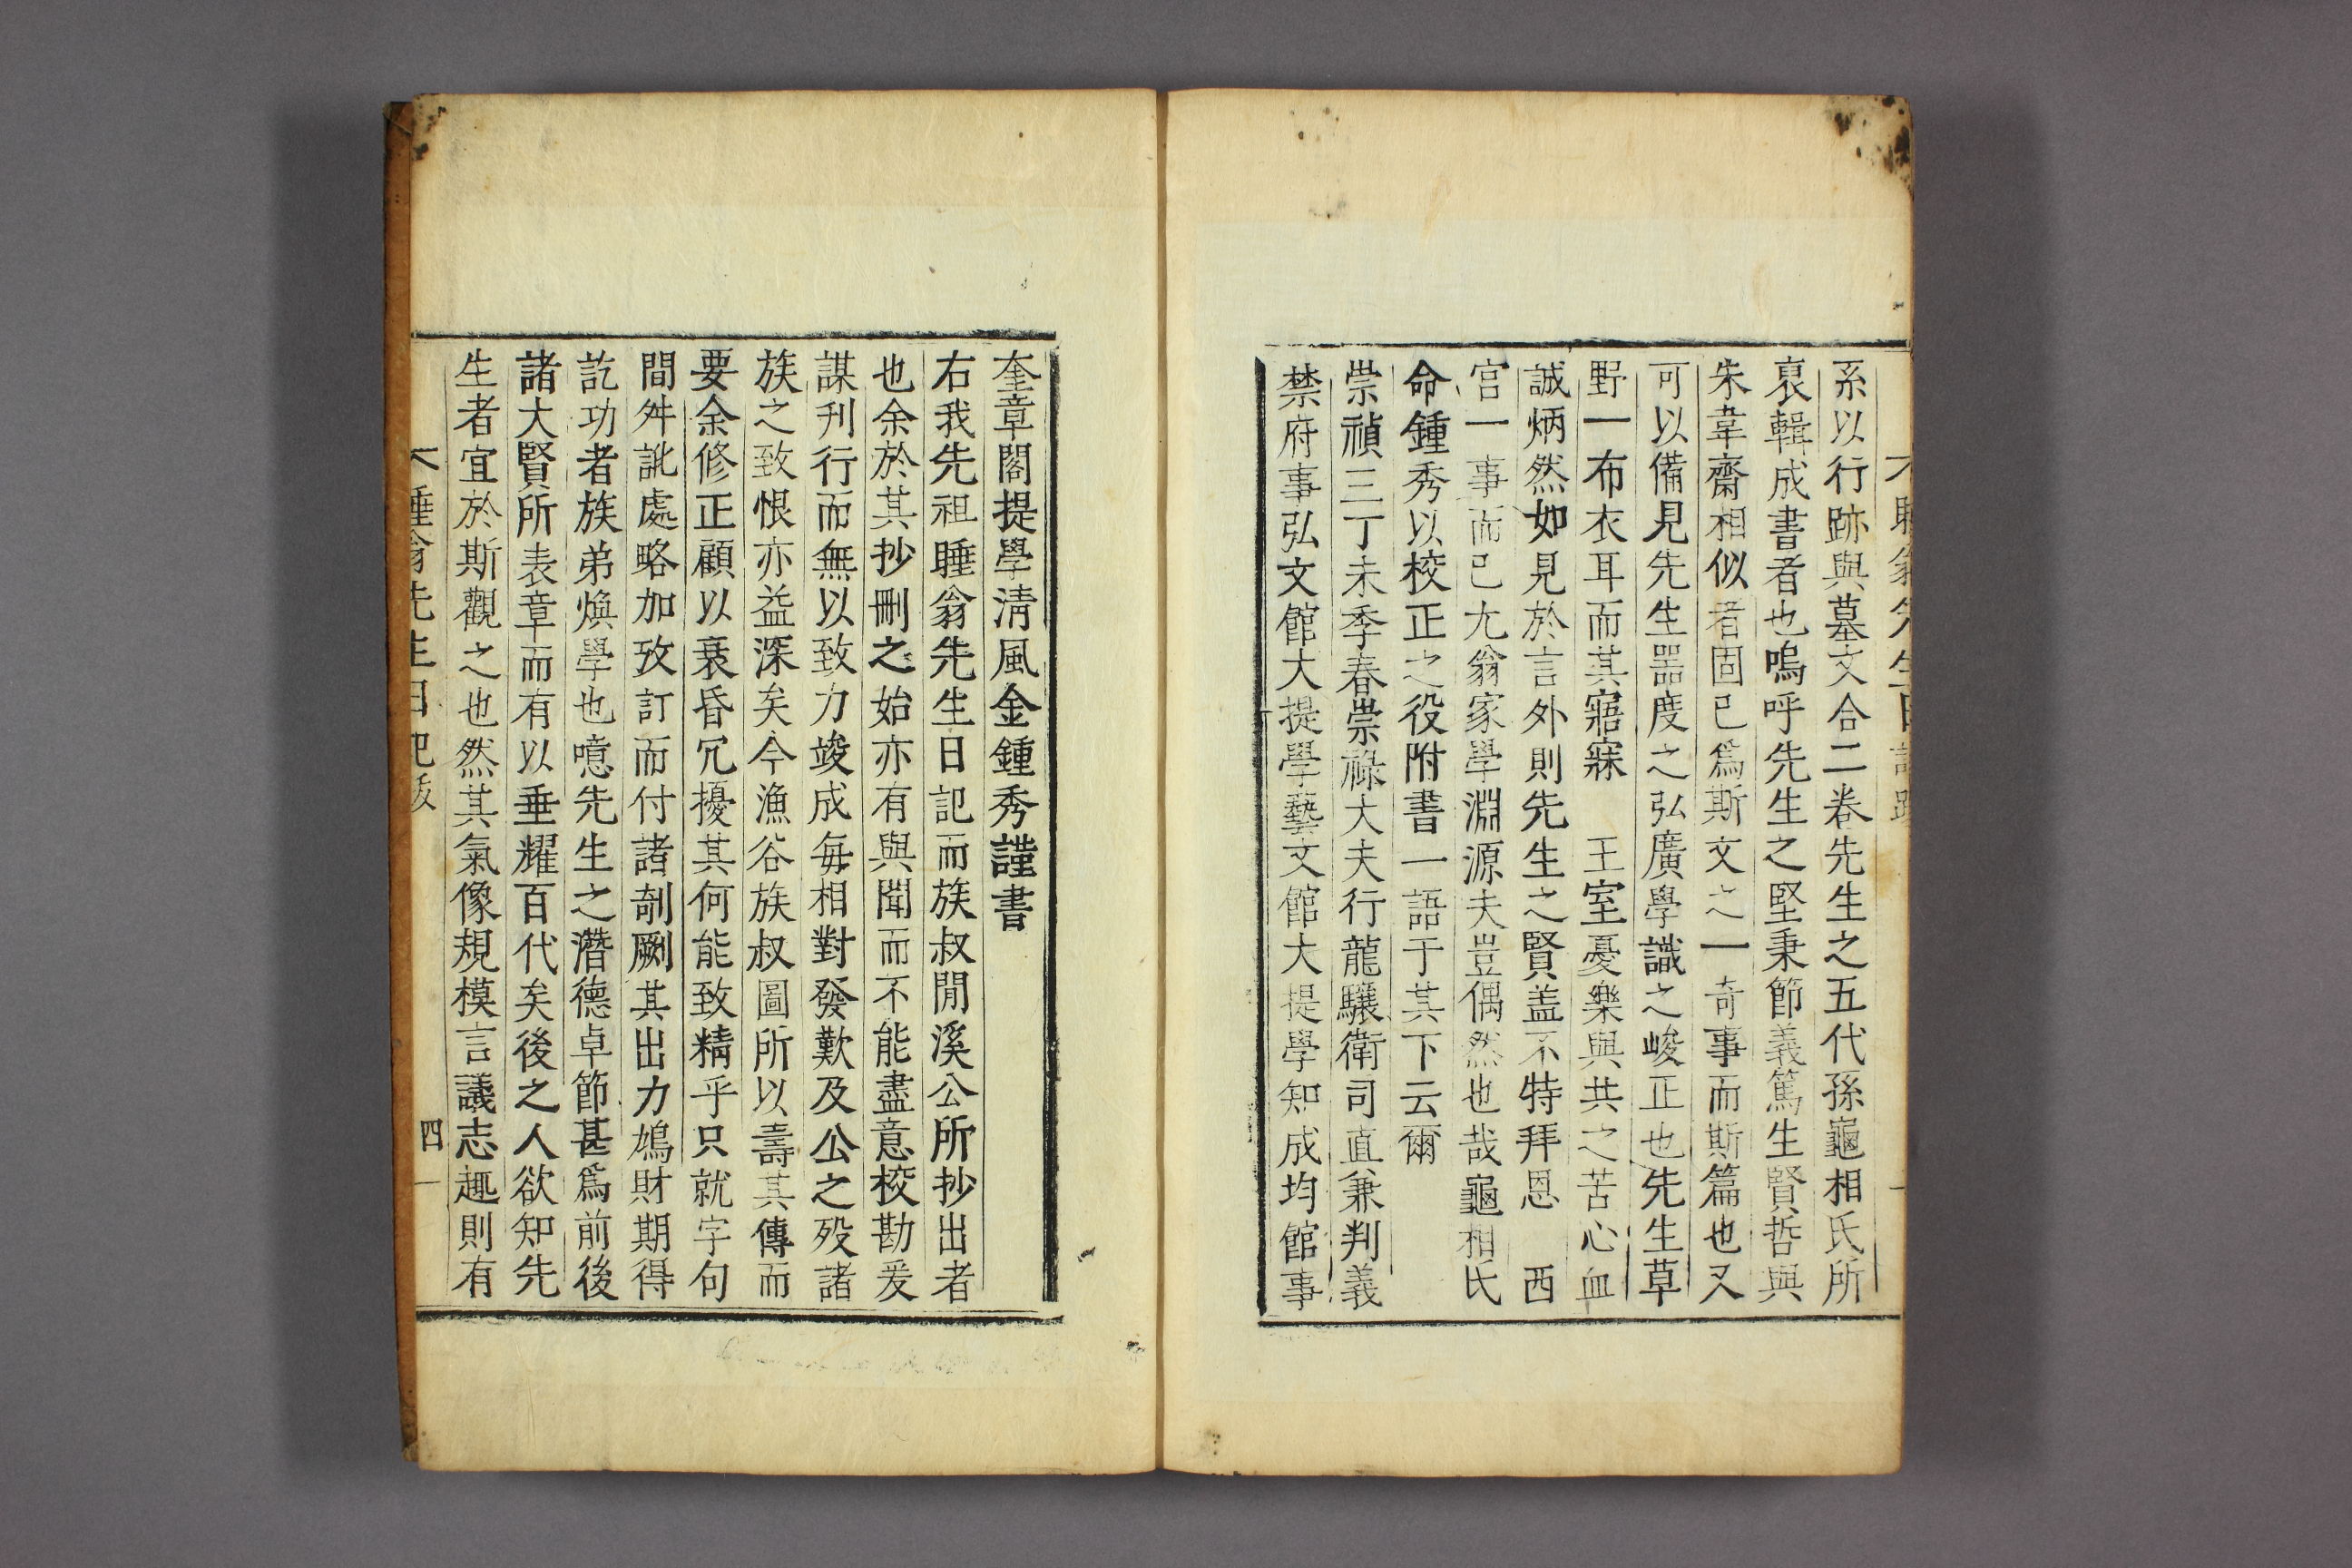 系以行跡與墓文合二卷先生之五代孫龜相氏所
裒輯成書者也嗚呼先生之堅秉節義篤生賢哲與
朱韋齋相似者固已爲斯文之一奇事而斯篇也又
可以備見先生噐度之弘廣學識之峻正也先生草
野一布衣耳而其寤寐王室憂樂與共之苦心血
誠炳然如見於言外則先生之賢盖不特拜恩西
宮一事而已尤翁家學淵源夫豈偶然也哉龜相氏
命鍾秀以校正之役附書一語于其下云爾
崇禎三丁未季春崇祿大夫行龍驤衛司直兼判義
禁府事弘文館大提學藝文館大提學知成均館事
奎章閣提學清風金鍾秀謹書
右我先祖睡翁先生日記而族叔閒溪公所抄出者
也余於其抄刪之始亦有與聞而不能盡意校勘爰
謀刋行而無以致力竣成每相對發歎及公之歿諸
族之致恨亦益深矣今漁谷族叔圖所以壽其傳而
要余修正顧以衰昏冗擾其何能致精乎只就字句
間舛訛處略加攷訂而付諸剞劂其出力鳩財期得
訖功者族弟煥學也噫先生之潛德卓節甚爲前後
諸大賢所表章而有以垂耀百代矣後之人欲知先
生者宜於斯觀之也然其氣像規模言議志趣則有
睡翁先生日記跋 四